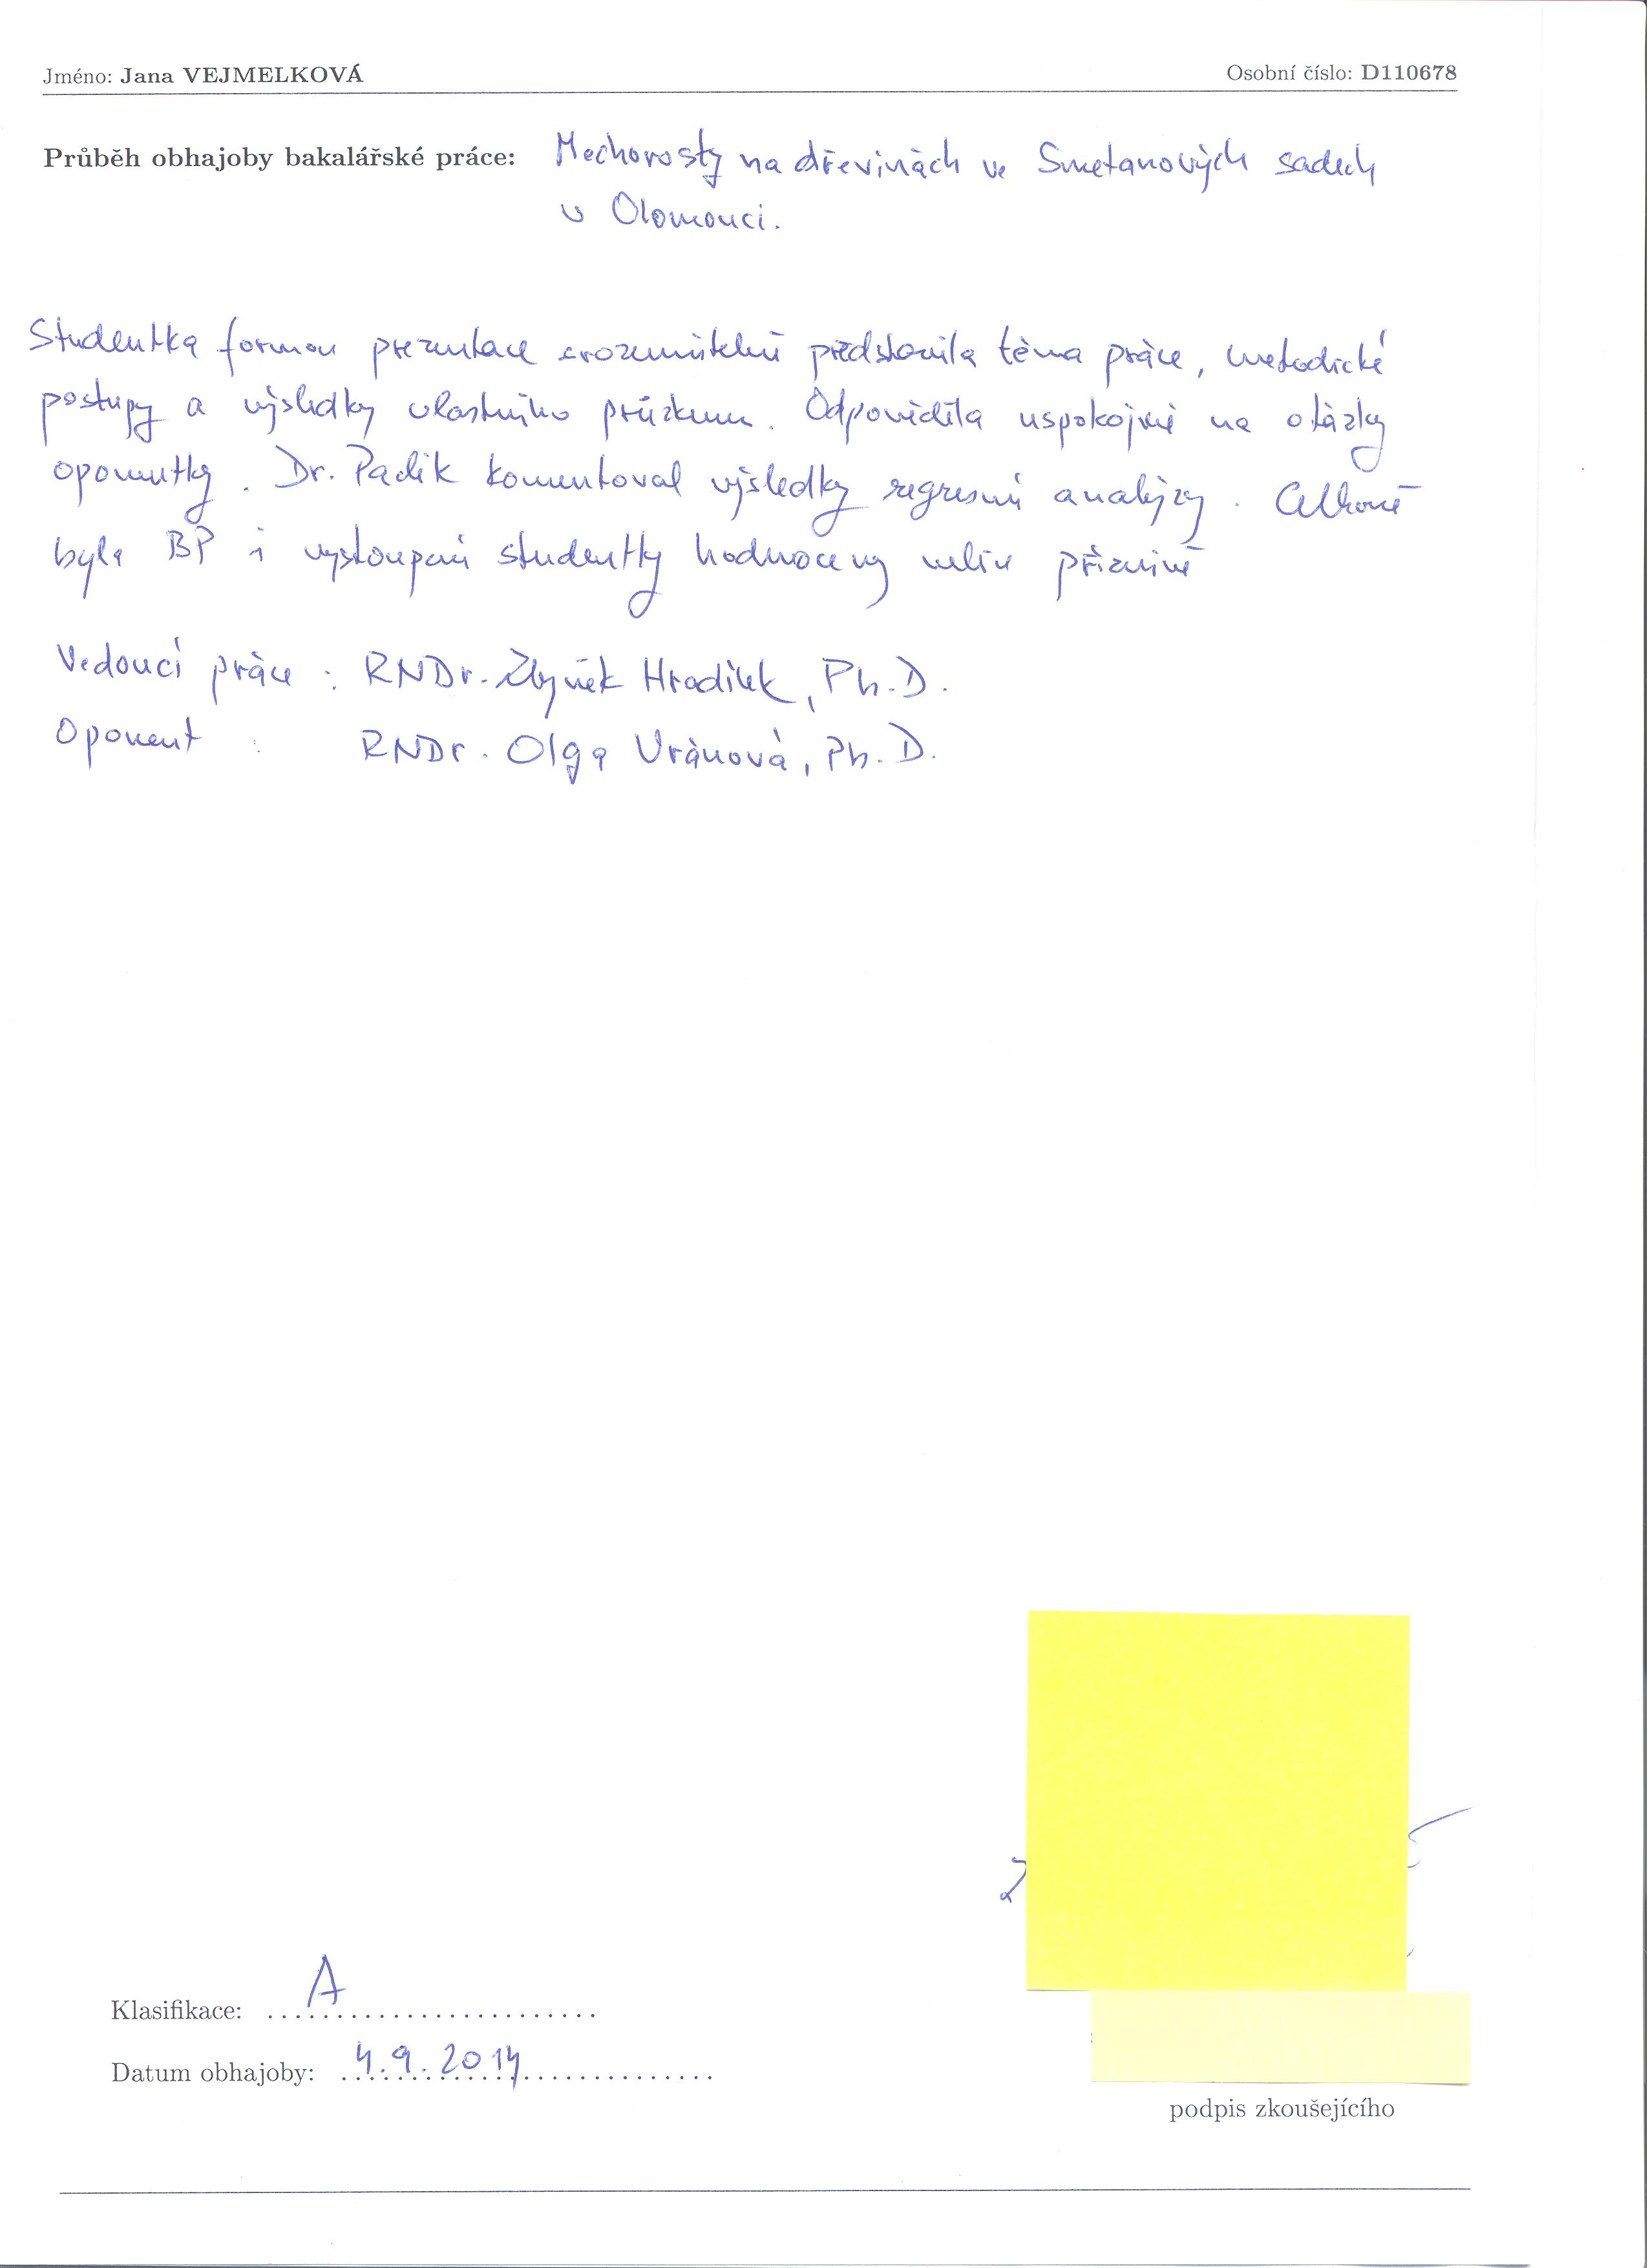 Jméno: Jana VEJMELKOVÁ Osobní číslo: D110678
Průběh obhajoby bakalářské práce: Mechorosty na dřevinách ve Smetanových sadech
v Olomouci.
Studentka formou prezentace srozumitelně představila téma práce, metodické
postupy a výsledky vlastního průzkumu. Odpověděla uspokojivě na otázky
oponentky. Dr. komentoval výsledky regresní analýzy. Celkově
byla BP i vystoupení studentky hodnoceny velice příznivě
Vedoucí práce : RNDr. Zbyněk Hradílek, Ph.D.
Oponent : RNDr. Olga Vránová, Ph.D.
Klasifikace: A
Datum obhajoby: 4.9.2014
podpis zkoušejícího